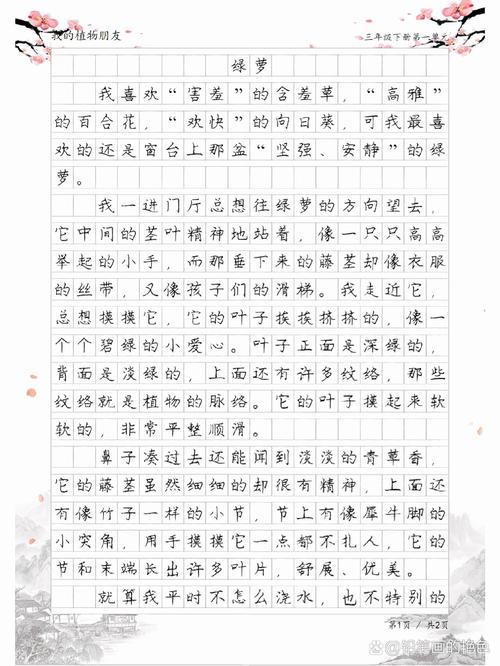 我的植物朋友
三年级下册第一单元
绿萝
我喜欢“害羞”的含羞草，“高雅”
的百合花，“欢快”的向日葵，可我最喜
欢的还是窗台上那盆“坚强、安静”的绿
萝。
我一进门厅总想往绿萝的方向望去，
它中间的茎叶精神地站着，像一只只高高
举起的小手，而那垂下来的藤茎却像衣服
的丝带，又像孩子们的滑梯。我走近它，
总想摸摸它，它的叶子挨挨挤挤的，像一
个个碧绿的小爱心。叶子正面是深绿的，
背面是淡绿的，上面还有许多纹络，那些
纹络就是植物的脉络。它的叶子摸起来软
软的，非常平整顺滑。
鼻子凑过去还能闻到淡淡的青草香，
它的藤茎虽然细细的却很有精神，上面还
有像竹子一样的小节，节上有像犀牛脚的
小突角，用手摸摸它一点都不扎人，它的
节和末端长出许多叶片，舒展、优美。
就算我平时不怎么浇水，也不特别的
第1页 / 共2页
铅笔画的橙色